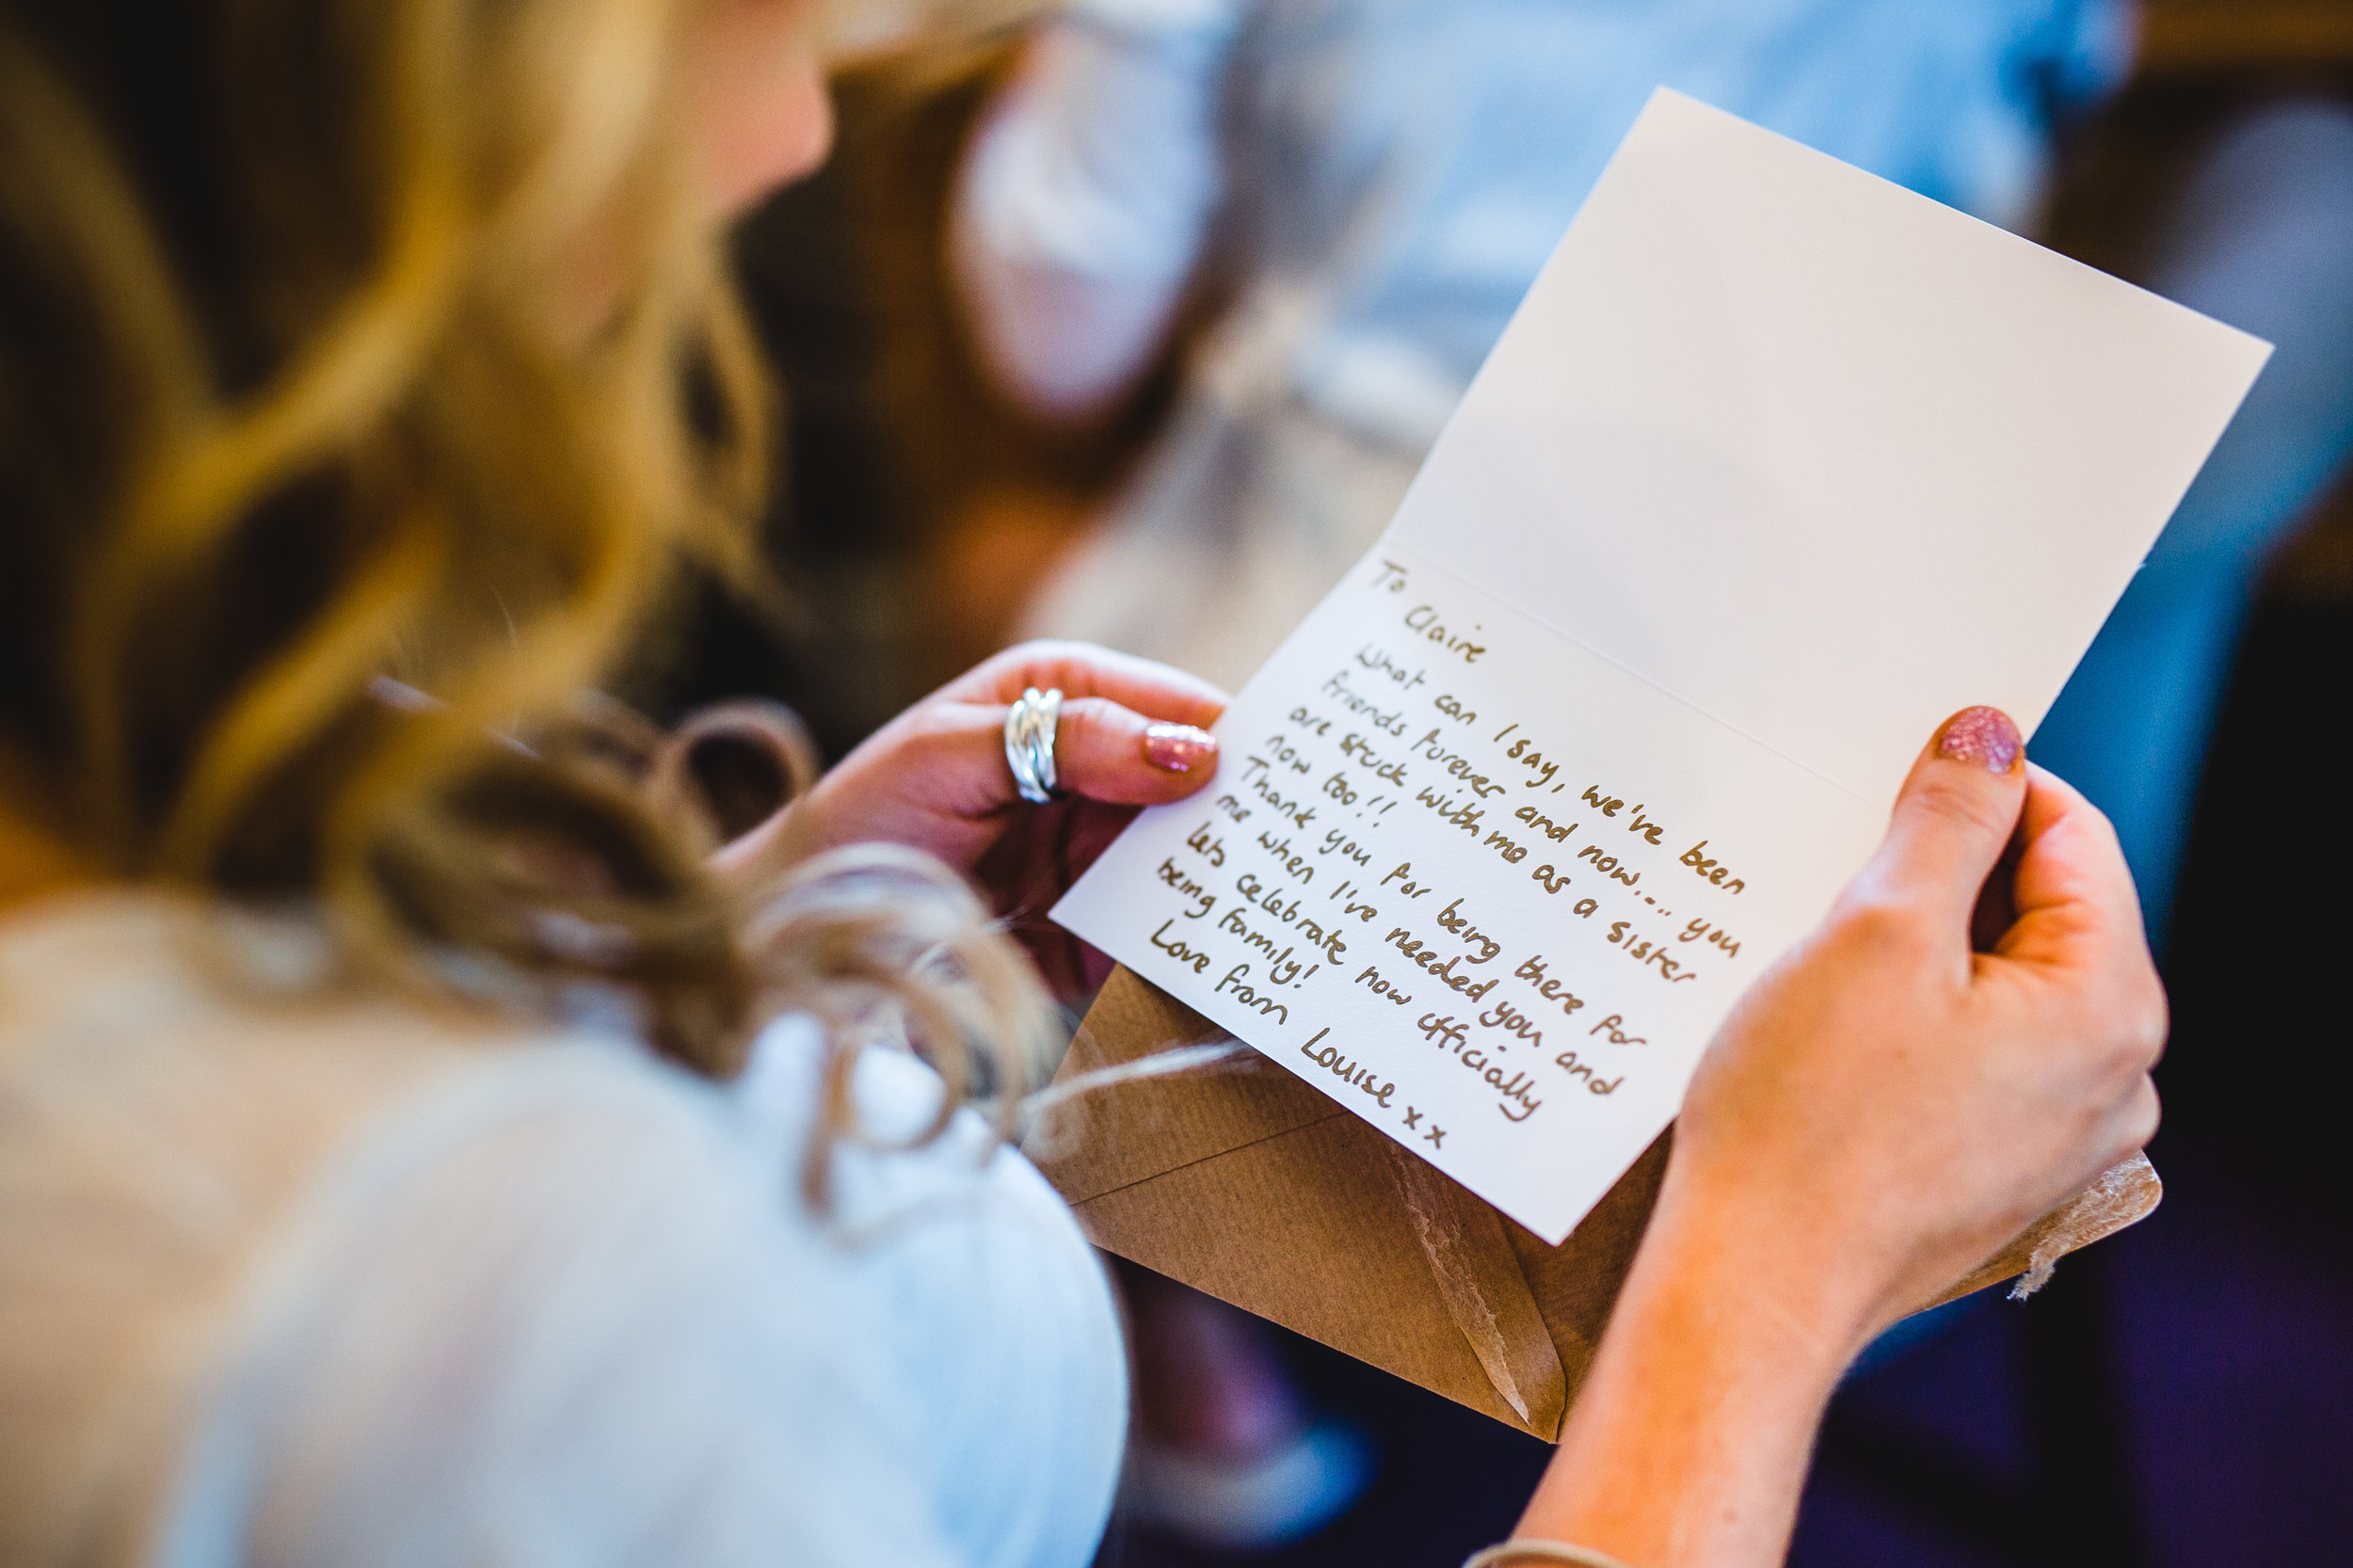 To Claire
What can I say, we've been
friends furever and now.... you
are stuck with me as a sister
now too!!
Thank you for being there for
me when I've needed you and
lets celebrate now officially
being family!
Love from Louise x x